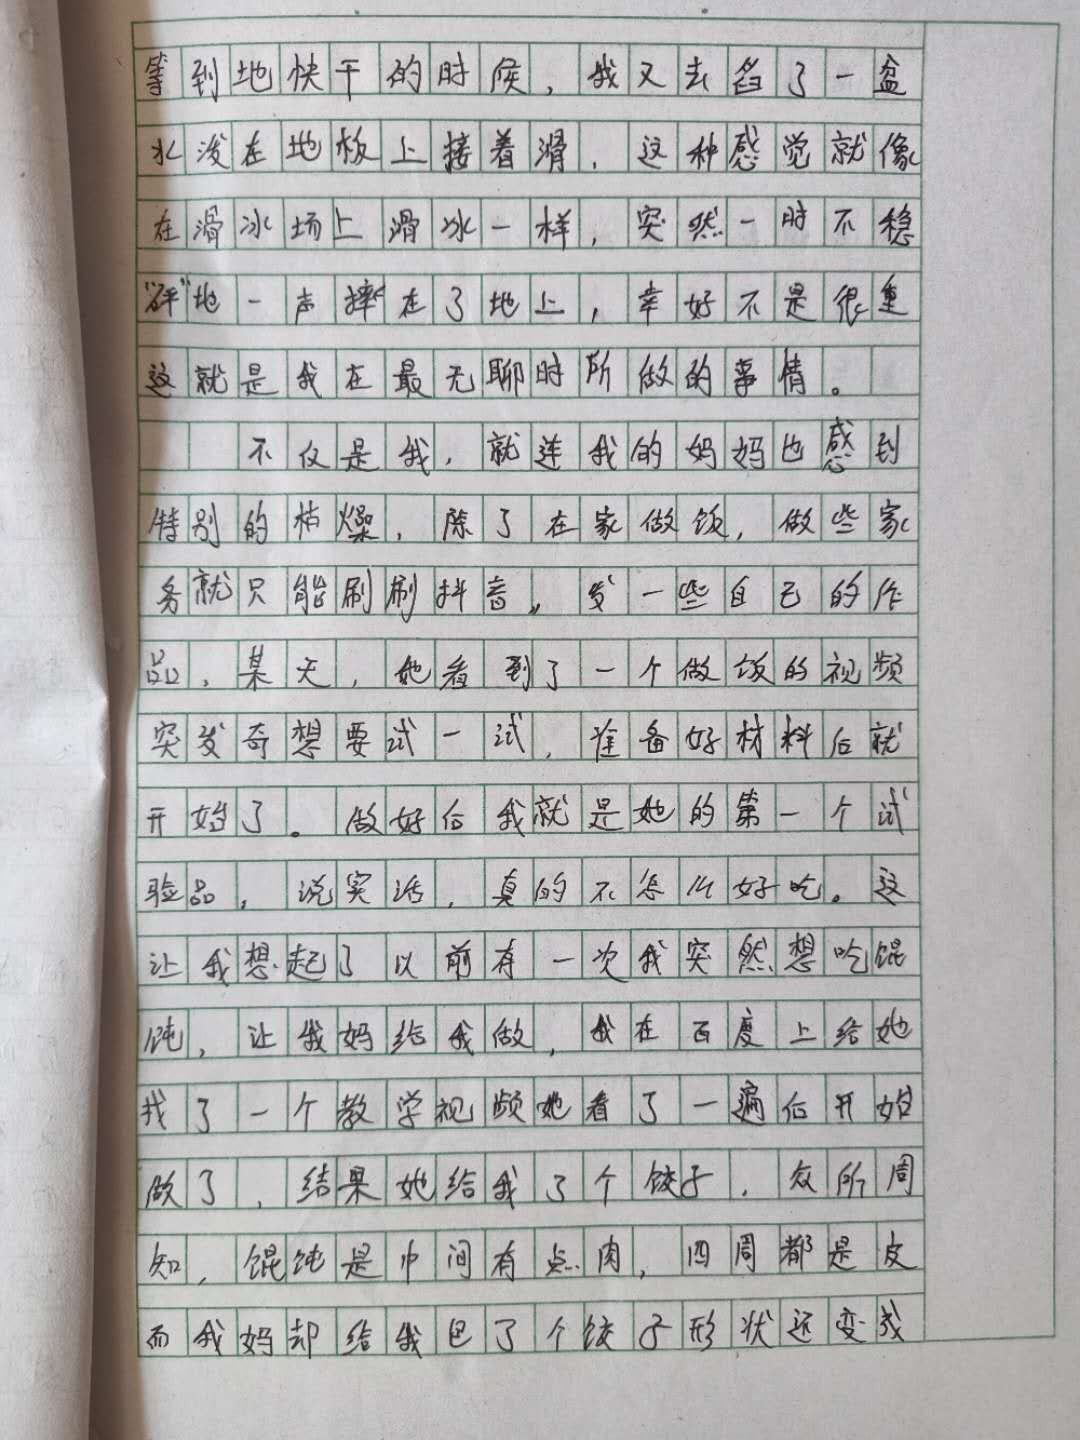 等到地快干的时候，我又去舀了一盆
水泼在地板上接着滑，这种感觉就像
在滑冰场上滑冰一样，突然一时不稳
“砰”地一声摔在了地上，幸好不是很重
这就是我在最无聊时所做的事情。
不仅是我，就连我的妈妈也感到
特别的枯燥，除了在家做饭，做些家
务就只能刷刷抖音，发一些自己的作
品，某天，她看到了一个做饭的视频
突发奇想要试一试，准备好材料后就
开始了。做好后我就是她的第一个试
验品，说实话，真的不怎么好吃。这
让我想起了以前有一次我突然想吃馄
饨，让我妈给我做，我在百度上给她
找了一个教学视频她看了一遍后开始
做了，结果她给我了个饺子，众所周
知，馄饨是中间有点肉，四周都是皮
而我妈却给我包了个饺子形状还变成